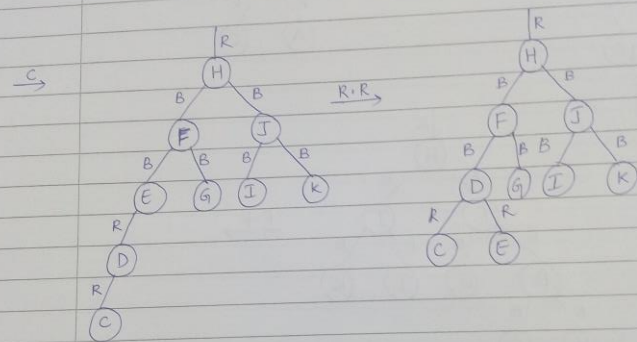 C
R
H
B B
F J
B B B B
E G I K
R
D
R
C
R.R
R
H
B B
F J
B B B B
D G I K
R R
C E